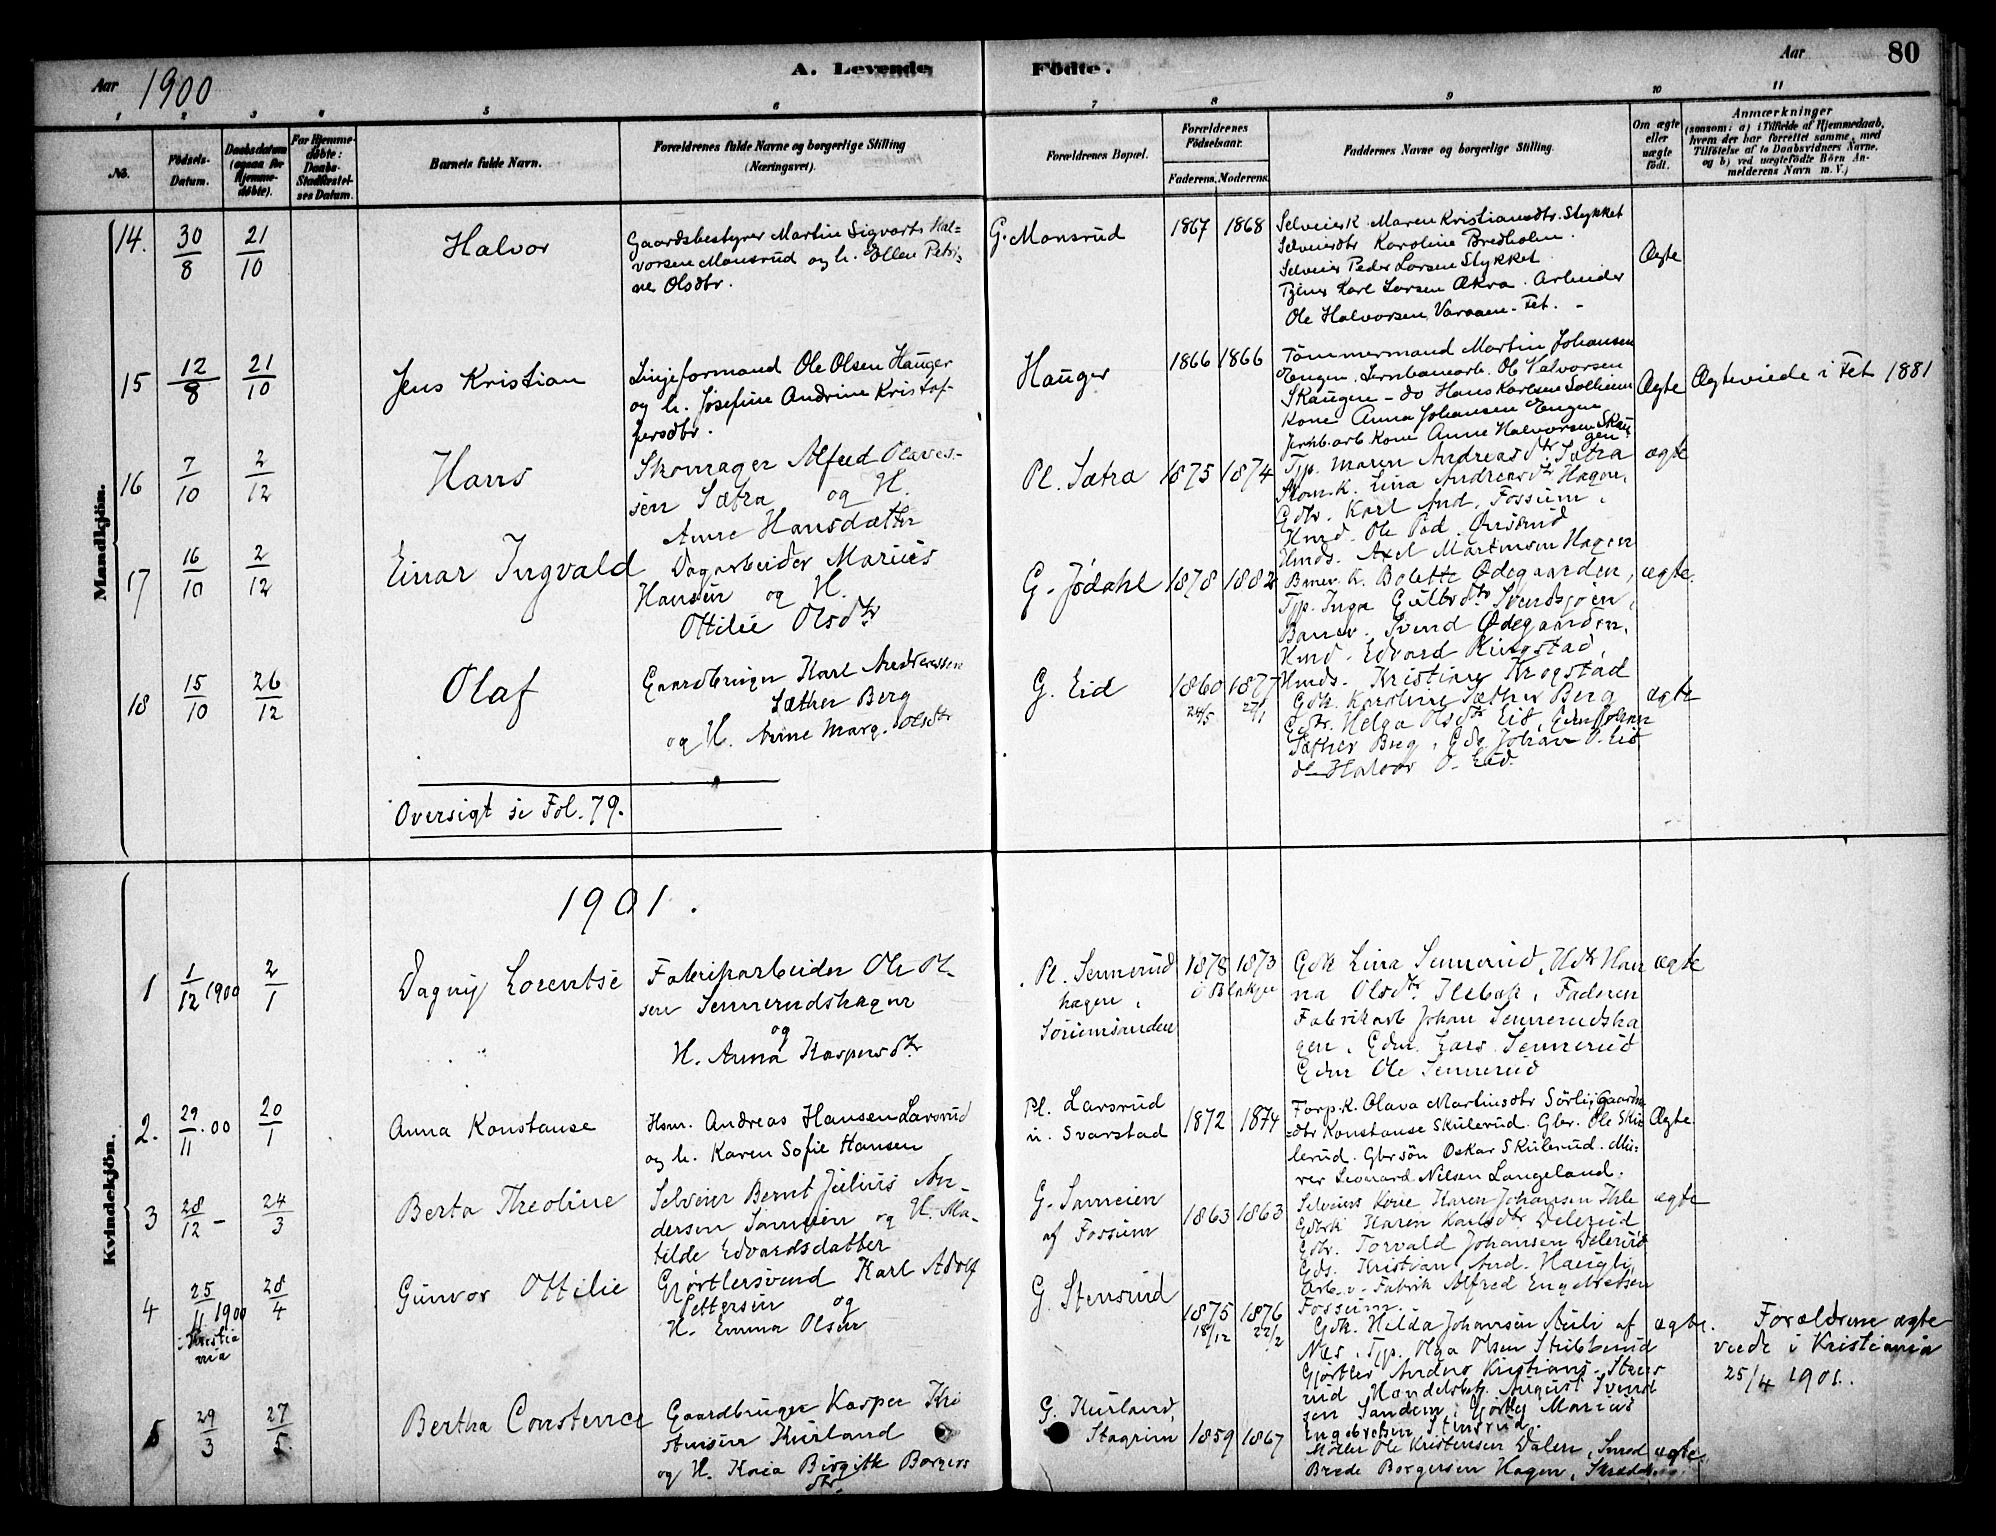 Aar 1900
A. Levende Födte.
Aar
80
1 2 3 4 5 6 7 8 9 10 11
No.
Födsels-Datum.
Daabsdatum (ogsaa for Hjemmedöbte).
For Hjemmedöbte: Daabs-Stadfæstelses Datum.
Barnets fulde Navn.
Forældrenes fulde Navne og borgerlige Stilling (Næringsvei).
Forældrenes Bopæl.
Forældrenes Födselsaar.
Faderens. Moderens.
Faddernes Navne og borgerlige Stilling.
Om ægte eller uægte födt.
Anmærkninger
(saasom: a) i Tilfælde af Hjemmedaab, hvem der har forrettet samme, med Tilföielse af to Daabsvidners Navne, og b) ved uægtefödte Börn Anmelderens Navn m. V.)
Mandkjön.
14. 30/8 21/10 Halvor
Gaardsbestyrer Martin Sigvart Hal-
vorsen Monsrud og h. Ellen Petri-
ne Olsdtr.
G. Monsrud
1867 1868
Selveierk. Maren Kristiansdtr. Stykket
Selveierdtr Karoline Bredholm.
Selveier Peder Larsen Stykket
Tjener Karl Larsen Økra. Arbeider
Ole Halvorsen, Varaaen. Fet. -
Ægte
15 12/8 21/10 Jens Kristian
Linjeformand Ole Olsen Hauger
og h. Josefine Andrine Kristof-
fersdtr.
Hauger
1866 1866
Tömmermand Martin Johansen
Engen. Jernbanearb. Ol. Valvorsen
Skaugen - do Hans Karlsen Solheim
Kone Anna Johansen Engen
Jernb.arb Kone Anne Halvorsen Skau-
gen
Ægte
Ægteviede i Fet 1881
16 7/10 2/12 Hans
Skomager Alfred Olaves-
sen Sætra og H.
Anne Hansdatter
Pl. Sætra
1875 1874
Tjp. Maren Andreasdtr. Sætra
Skom.k. Lina Andreasdtr Hagen,
Gdbr. Karl And. Fossum,
Hmd. Ole Ped.
Hmds. Axel Martinsen Hagen
ægte
17 16/10 2/12 Einar Ingvald
Dagarbeider Marius
Hansen og H.
Ottilie Olsdtr
G. Jödahl
1878 1882
Banev. K. Bolette Ødegaarden,
Tjp. Inga Gulbrdtr Svendsjoen,
Banev. Svend Ødegaarden,
Hmd. Edvard Ringstad,
Hmds. Kristian Krogstad
ægte.
18 15/10 26/12 Olaf
Gaardbruger Karl Andreassen
Sæther Berg
og H. Anne Marg. Olsdtr
G. Eid
1860 24/5 1877 27/1
Gdk. Karoline Sæther Berg
Gdtr. Helga Olsdtr Eid, Gdm Johan
Sæther Berg, Gdg Johan O. Eid
do Halvor O. Eid.
ægte
Oversigt se Fol. 79.
1901.
Kvindekjön.
1 1/12 1900 2/1 Dagny Lorentse
Fabrikarbeider Ole Ol-
sen Sennerudshagen
og
H. Anna Kaspersdtr
Pl. Sennerud
hagen,
Sörumsanden
1878 1873
i Blakjer
Gdk Lina Sennerud, Hdtr Han
na Olsdtr Ilebæk, Faderen
Fabrikarb Johan Sennerudsha
gen, Gdm. Lars Sennerud
Gdm Ole Sennerud
ægte
2. 29/11.00 20/1 Anna Konstanse
Hsm. Andreas Hansen Larsrud
og h. Karen Sofie Hansen
Pl. Larsrud
u. Svarstad
1872 1874
Forp.k. Olava Martinsdtr Sörli, Gaardm
=dtr Konstanse Skulerud. Gbr. Ole Sku
lerud. Gbrsön Oskar Skulerud. Mu-
rer Leonard Nilsen Langeland.
Ægte.
3 28/12 - 24/3 Berta Theoline
Selveier Bernt Julius An-
dersen Sameien og H. Ma-
tilde Edvardsdatter
G. Sameien
af Fossum
1863 1863
Selveiers Kone Karen Johansen Ihle
Gdbrk Karen Karlsdtr Delerud
Gdbr. Torvald Johansen Delerud
Gds. Kristian And. Haugli,
Arb. v. Fabrik Alfred Engebretsen
Fossum.
ægte
4 25/11 1900 i Kristiania 28/4 Gunvor Ottilie
Gjörtlersvend Karl Adolf
Pettersen og
H. Emma Olsen
G. Stensrud
1875 18/12 1876 22/2
Gdk. Hilda Johansen Auli af
Næs, Tjp. Olga Olsen Stubberud
Gjörtler Anders Kristians. Stens
rud, Handelsbetj. August Svend
sen Sanden, Gjörtler Marius
Engebretsen Stensrud.
ægte.
Forældrene ægte
viede i Kristiania
25/4 1901.
5 29/3 27/5 Bertha Constence
Gaardbruger Kasper Kri
stensen Hurland
og H. Karia Birgitte Borgers
dtr.
G. Hurland,
1859 1867
Möller Ole Kristensen Dalen, Smed
Brede Borgersen Hagen,
ægte.